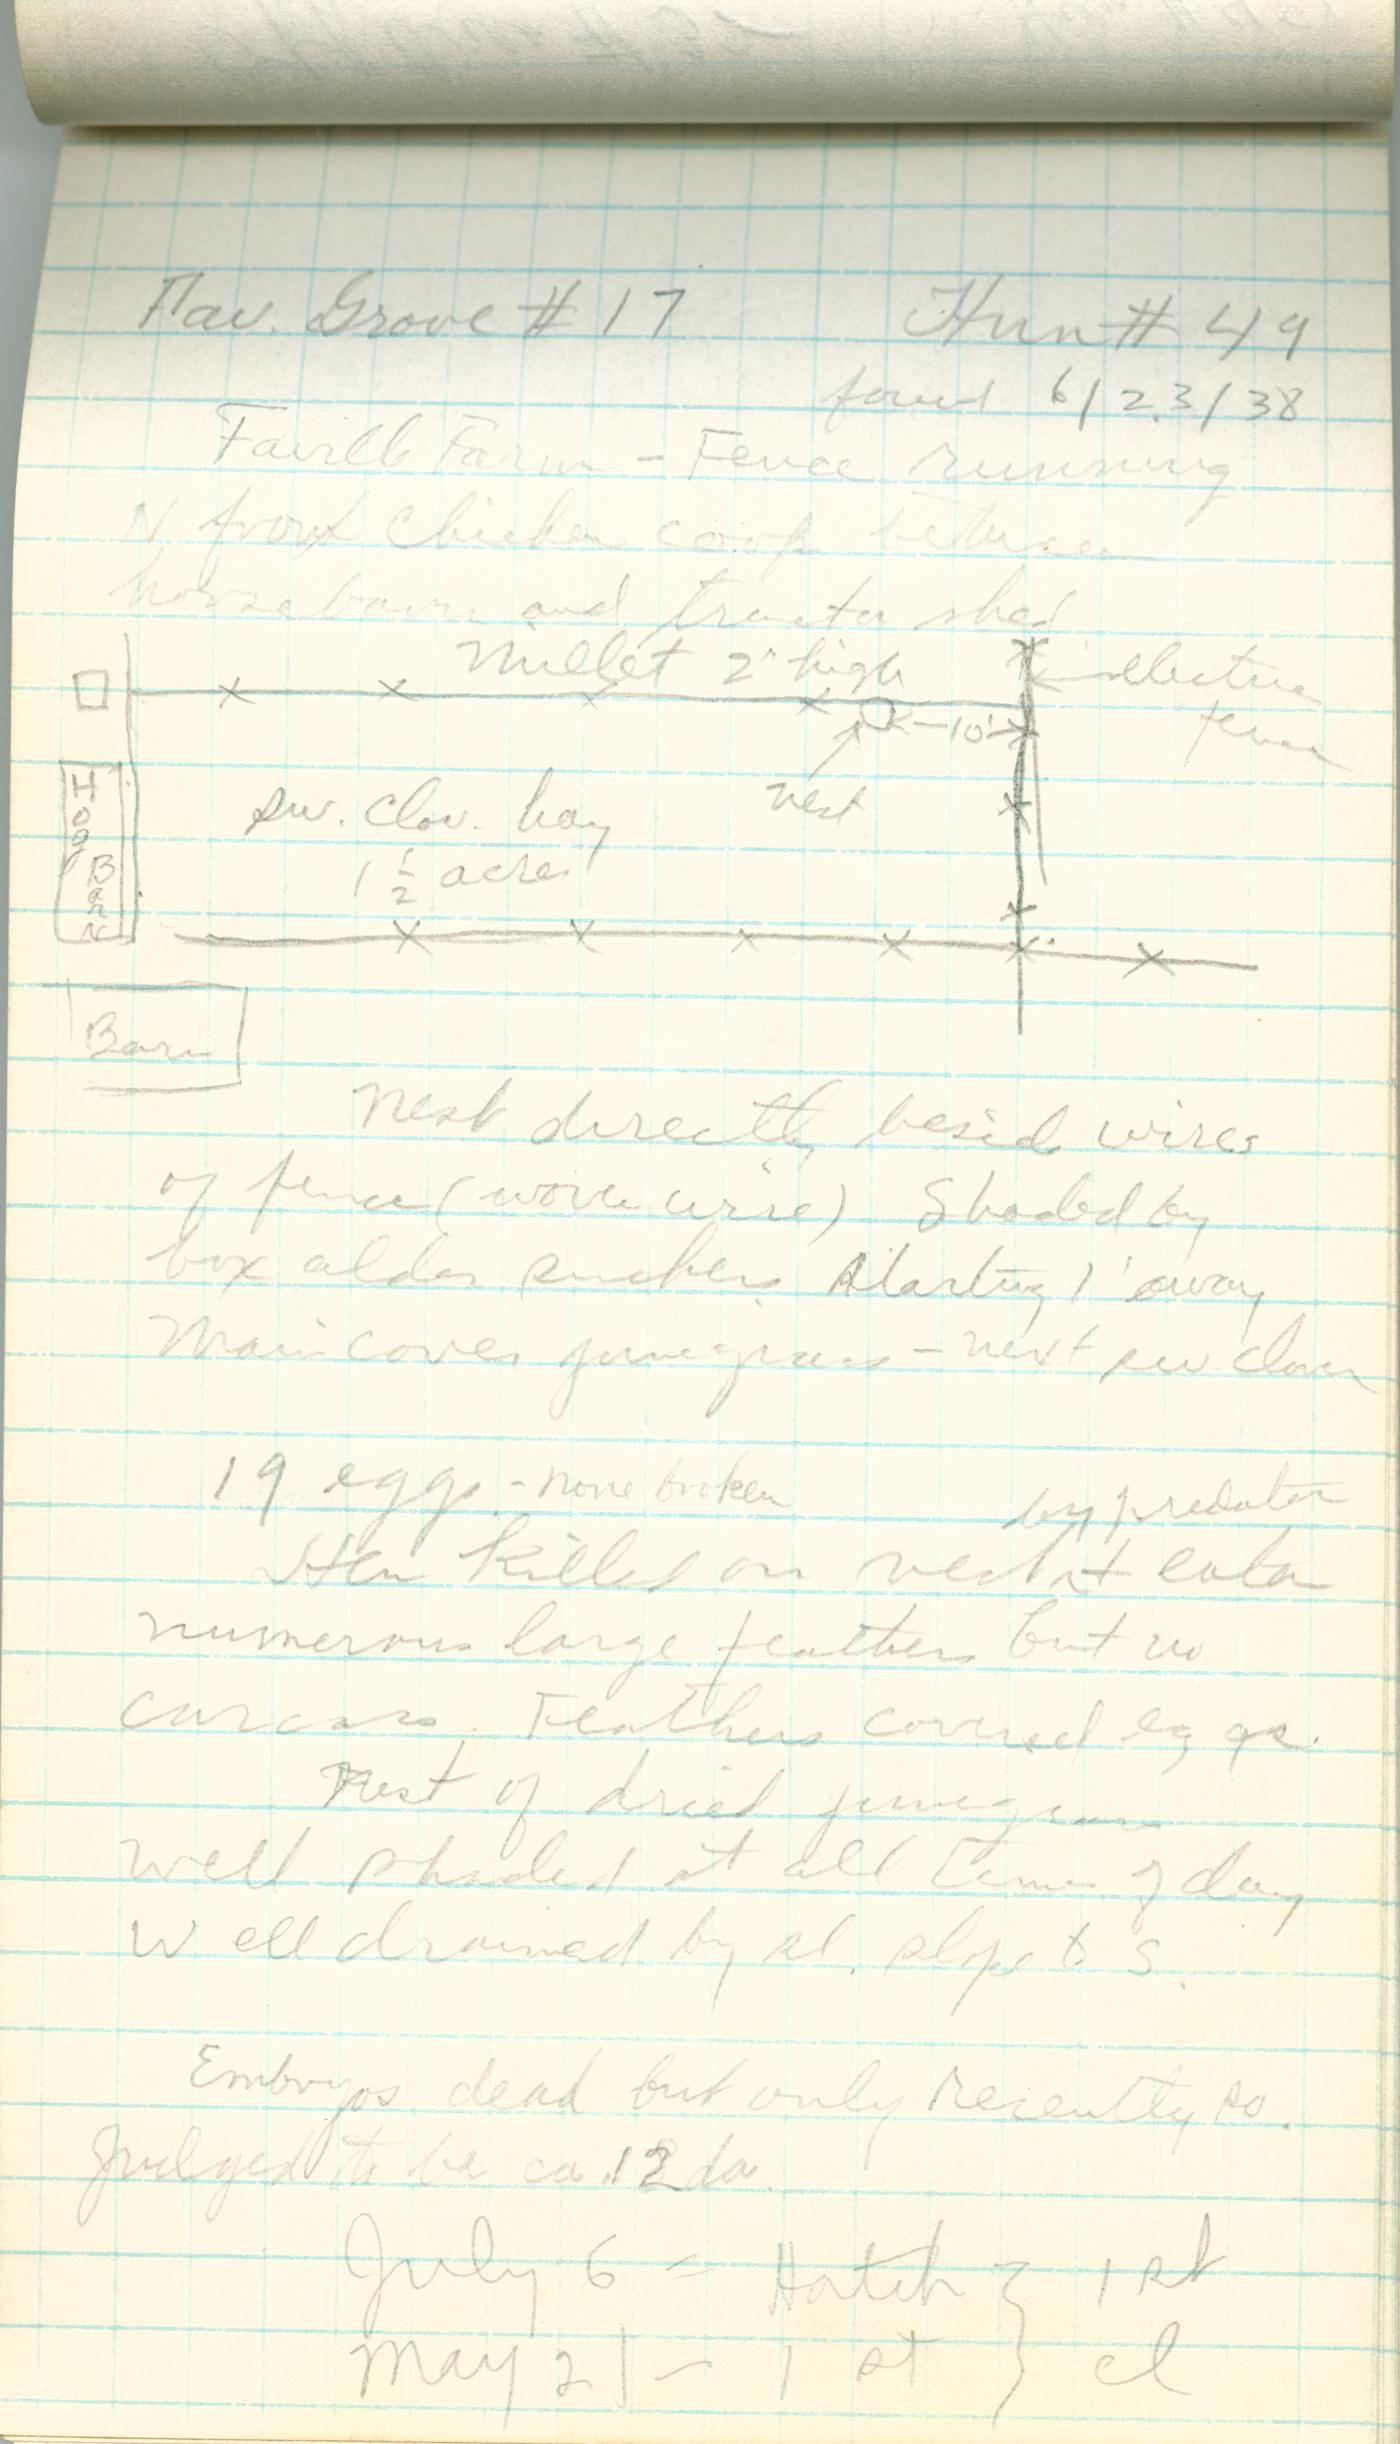 Fav. Grove # 17 Hun # 49
found 6/23/38
Faville Farm - Fence running
N from chicken coop between
horsebarn and tractor shed
Millet 2" high
electric
fence
10'
nest
Hog Barn
sw. clov. hay
1 1/2 acre
Barn
Nest directly beside wires
of fence (woven wire) Shaded by
box alder suckers. Starting 1' away
Main cover junegrass - next sw clover
19 eggs - none broken
by predator
Hen killed on nest & eaten
numerous large feathers but no
carcass. Feathers covered eggs.
Nest of dried junegrass
well shaded at all times of day
Well drained by sl. slope to S.
Embryos dead but only recently so.
Judged to be ca. 12 da.
July 6 = Hatch } 1 st
May 21 - 1 st } cl